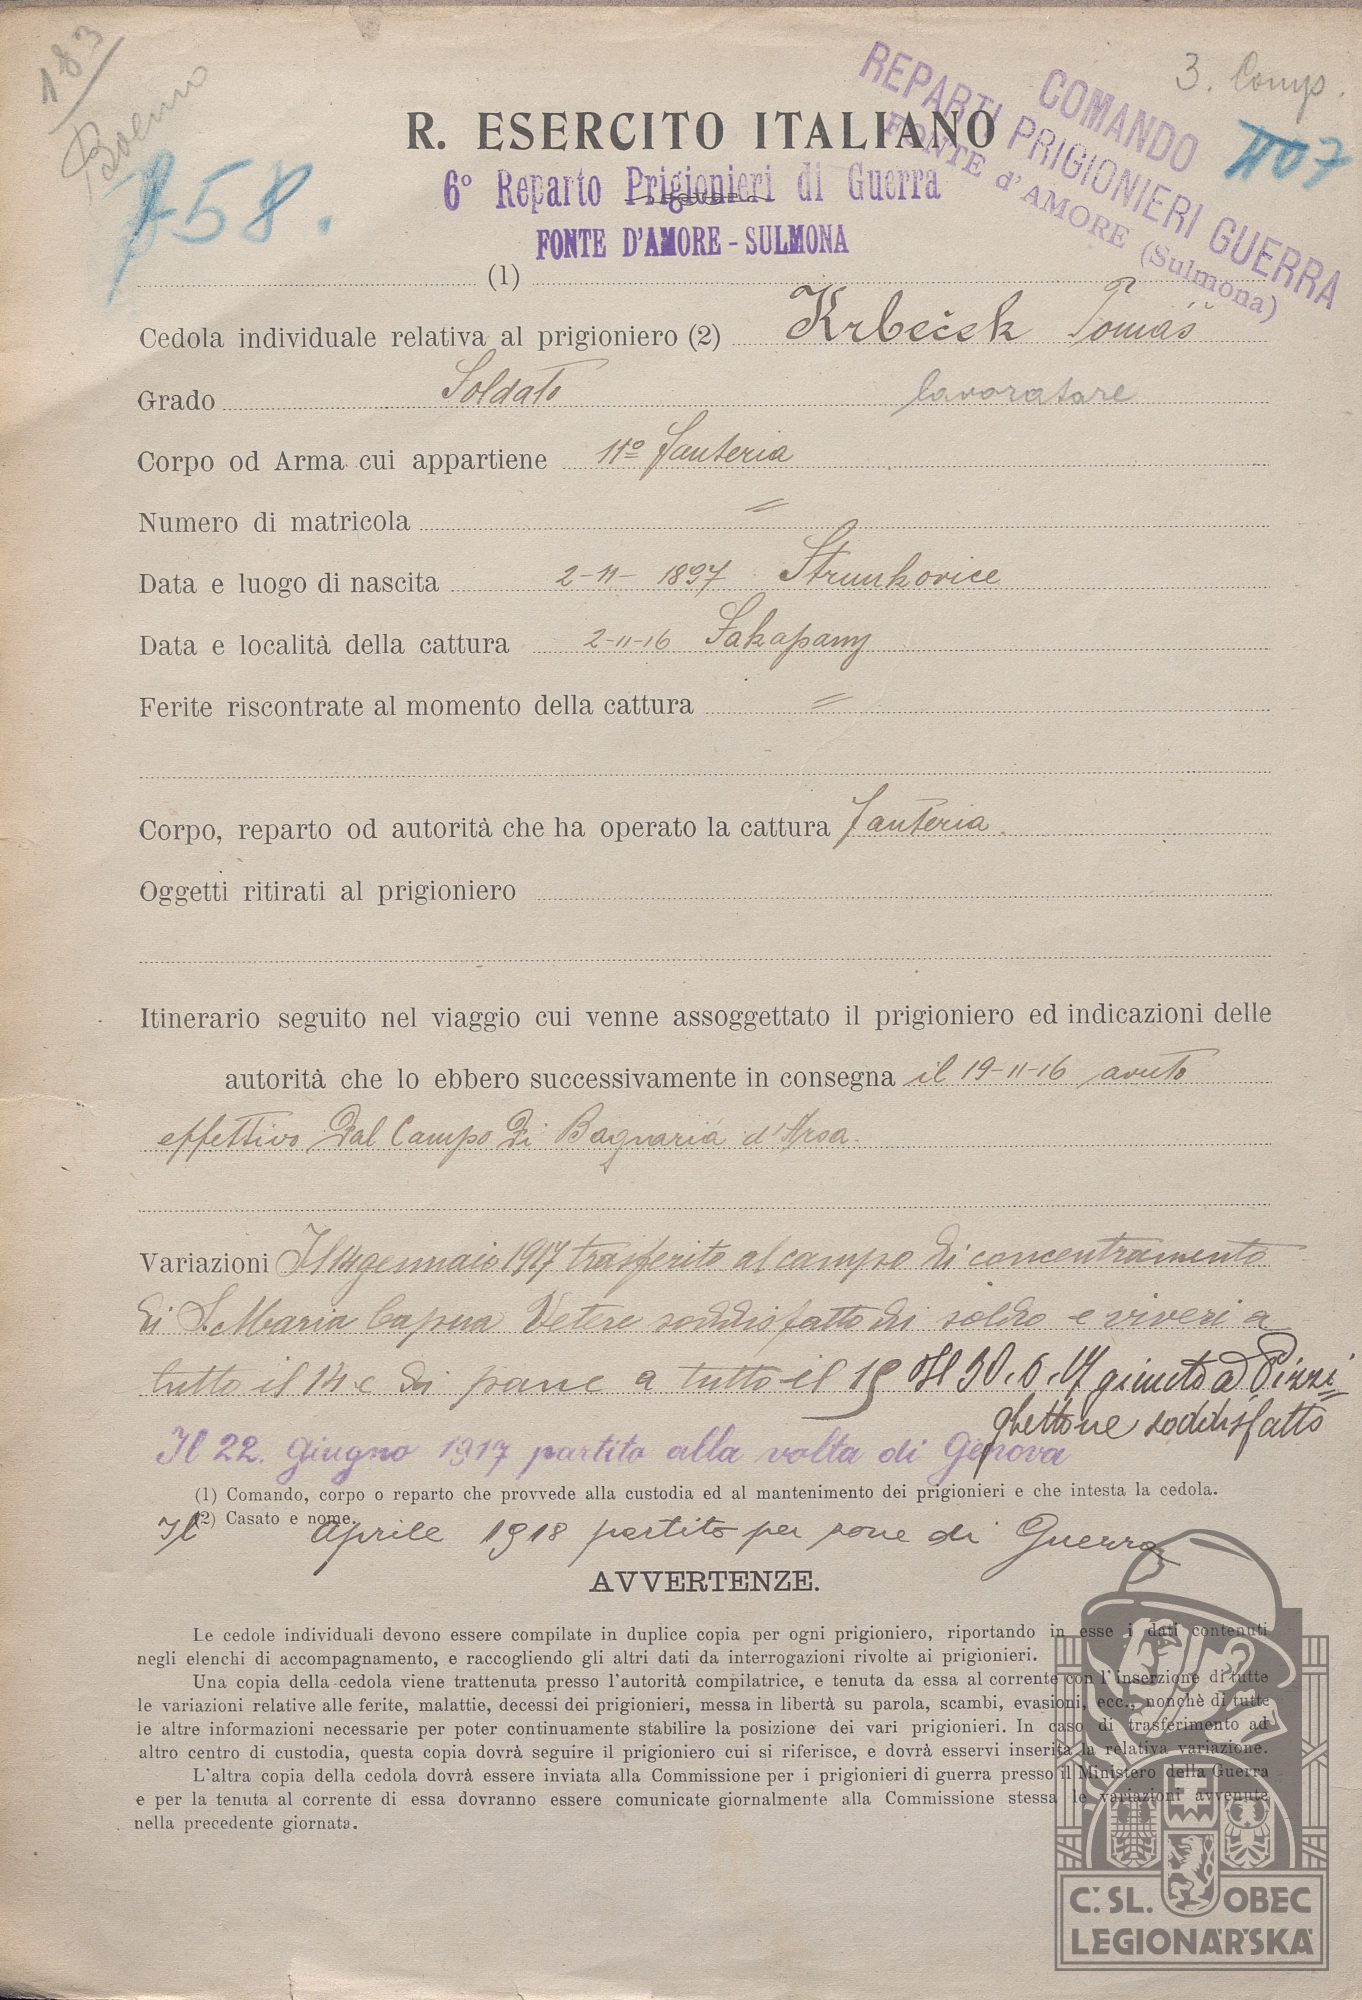 183
Boemo
158.
3. Comp.
1107
COMANDO
REPARTI PRIGIONIERI GUERRA
FONTE d'AMORE (Sulmona)
R. ESERCITO ITALIANO
6° Reparto Prigionieri di Guerra
FONTE D'AMORE - SULMONA
(1)
Cedola individuale relativa al prigioniero (2) Krbeček Tomáš
Grado Soldato lavoratore
Corpo od Arma cui appartiene 11° fanteria
Numero di matricola =
Data e luogo di nascita 2-11-1897 Strunkovice
Data e località della cattura 2-11-16 Lakapany
Ferite riscontrate al momento della cattura =
Corpo, reparto od autorità che ha operato la cattura fanteria
Oggetti ritirati al prigioniero
Itinerario seguito nel viaggio cui venne assoggettato il prigioniero ed indicazioni delle
autorità che lo ebbero successivamente in consegna il 19-11-16 avuto
effettivo dal Campo di Bagnaria d'Arsa.
Variazioni Il 14 gennaio 1917 trasferito al campo di concentramento
di S. Maria Capua Vetere soddisfatto di soldo e viveri a
tutto il 14 e di pane a tutto il 15 Il 30.6.17 giunto a Pizzi=
ghettone soddisfatto
Il 22. Giugno 1917 partito alla volta di Genova
(1) Comando, corpo o reparto che provvede alla custodia ed al mantenimento dei prigionieri e che intesta la cedola.
(2) Casato e nome.
Il Aprile 1918 partito per zone di Guerra
AVVERTENZE.
Le cedole individuali devono essere compilate in duplice copia per ogni prigioniero, riportando in esse i dati contenuti
negli elenchi di accompagnamento, e raccogliendo gli altri dati da interrogazioni rivolte ai prigionieri.
Una copia della cedola viene trattenuta presso l'autorità compilatrice, e tenuta da essa al corrente con l'inserzione di tutte
le variazioni relative alle ferite, malattie, decessi dei prigionieri, messa in libertà su parola, scambi, evasioni, ecc., nonchè di tutte
le altre informazioni necessarie per poter continuamente stabilire la posizione dei vari prigionieri. In caso di trasferimento ad
altro centro di custodia, questa copia dovrà seguire il prigioniero cui si riferisce, e dovrà esservi inserita la relativa variazione.
L'altra copia della cedola dovrà essere inviata alla Commissione per i prigionieri di guerra presso il Ministero della Guerra
e per la tenuta al corrente di essa dovranno essere comunicate giornalmente alla Commissione stessa le variazioni avvenute
nella precedente giornata.
Č. SL. OBEC
LEGIONÁŘSKÁ